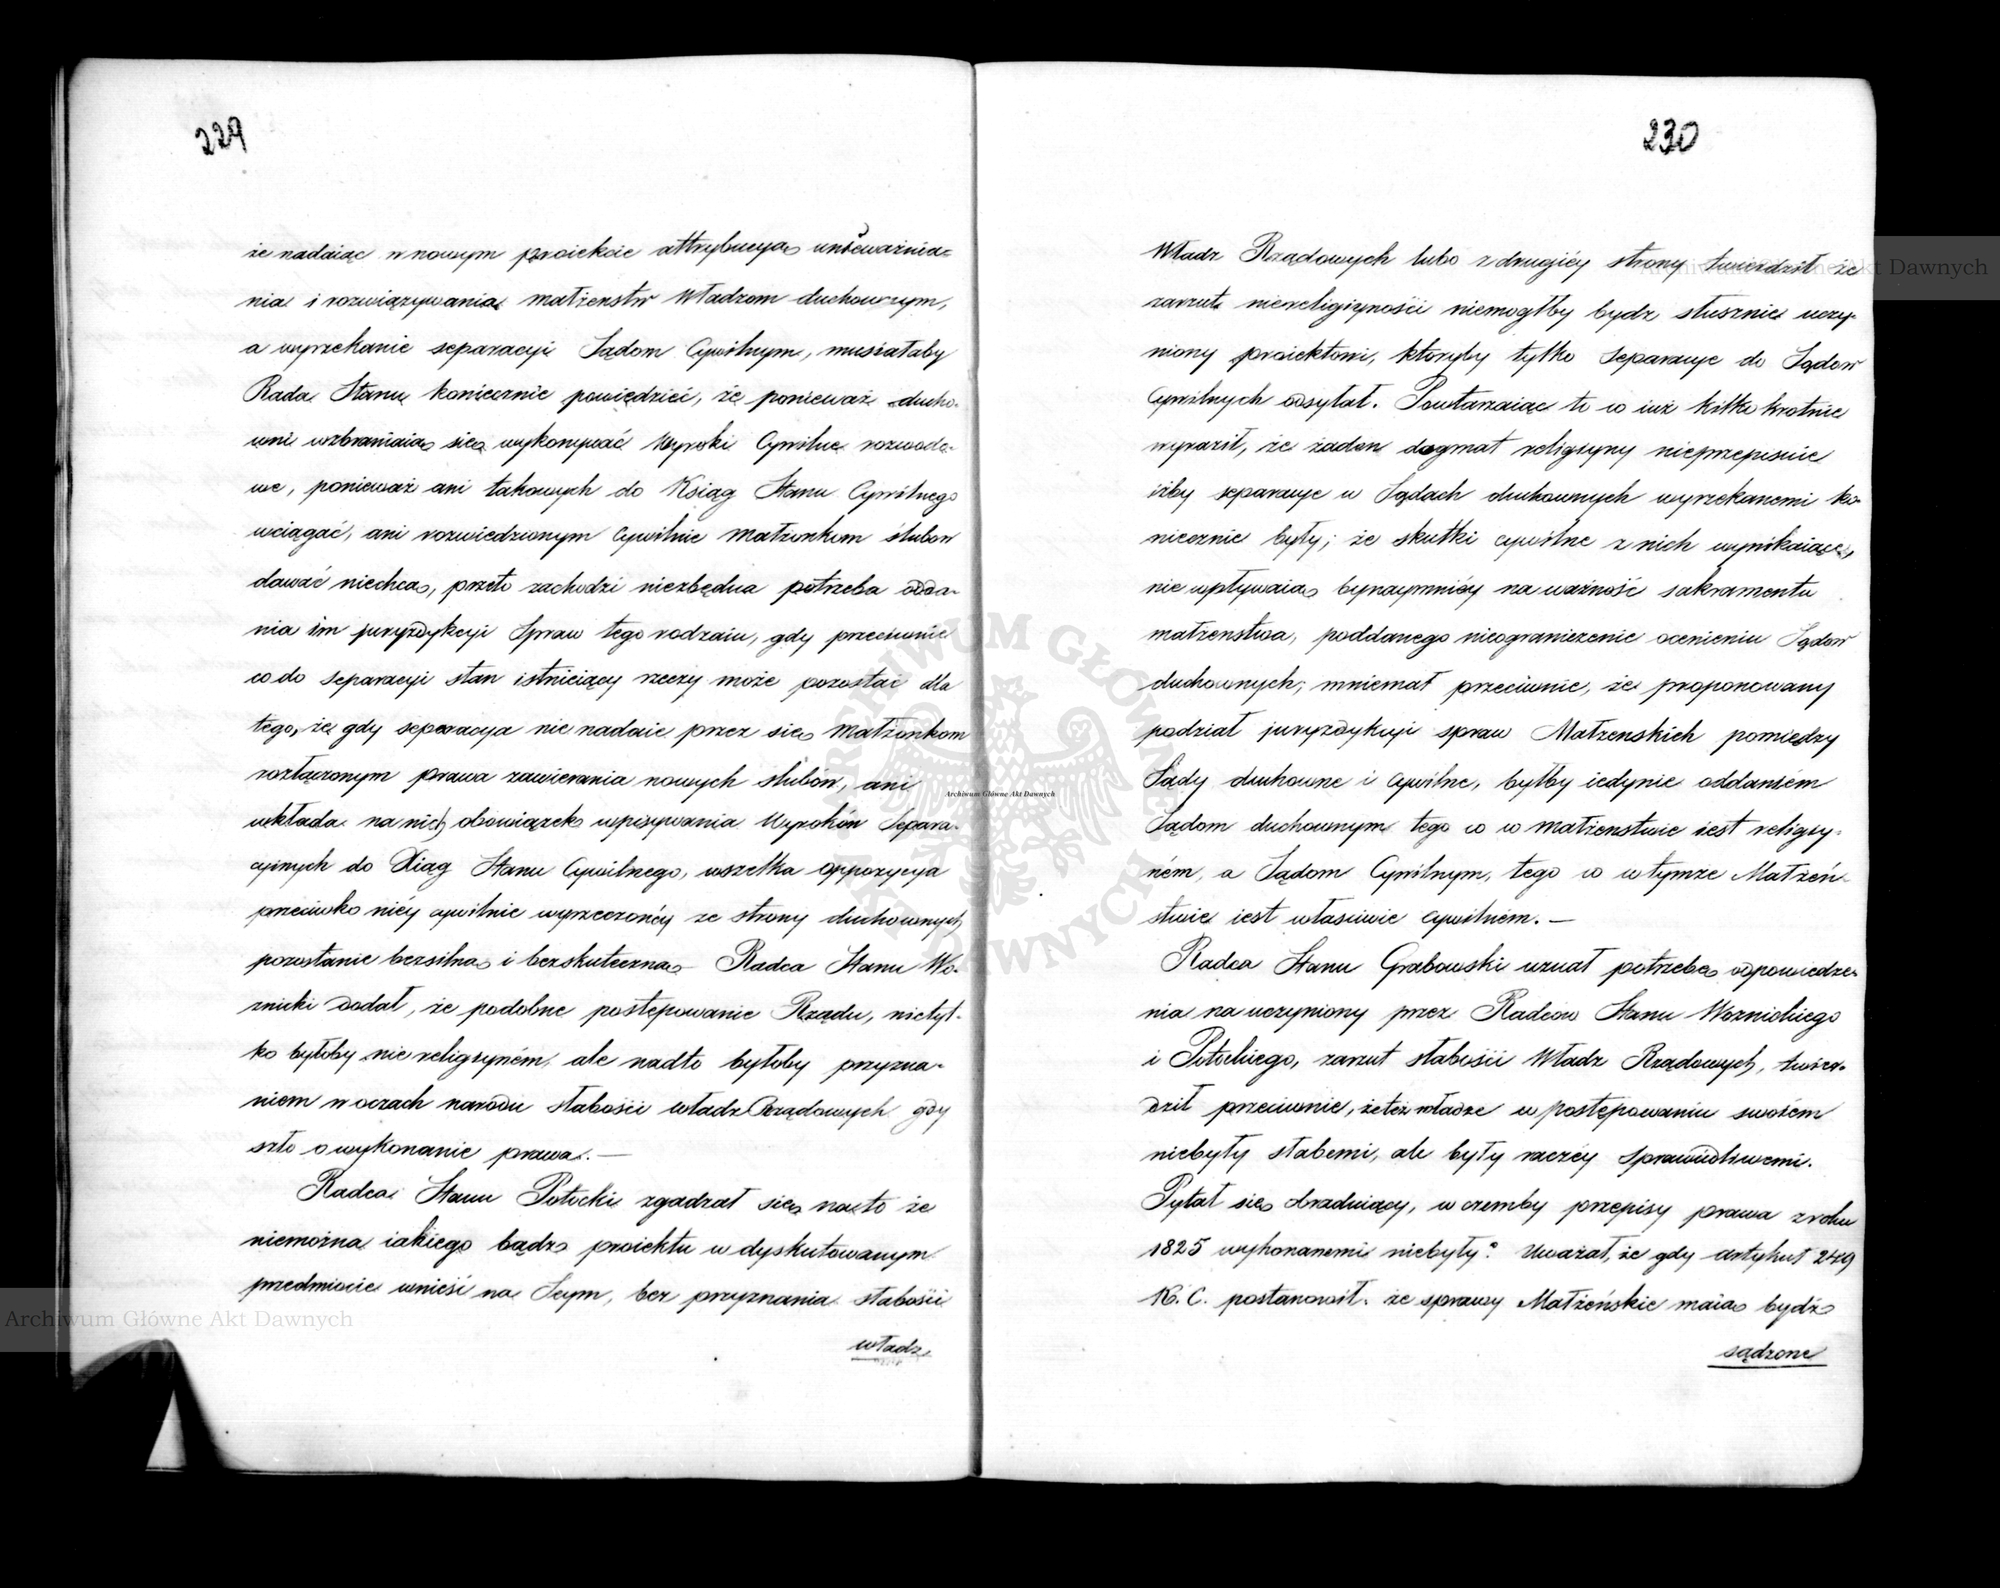 229
że nadaiąc w nowym proiekcie attrybucyą unieważnia-
nia i rozwiązywania małżenstw Władzom duchownym,
a wyrzekanie separacyi Sądom Cywilnym, musiałaby
Rada Stanu koniecznie powiedzieć, że ponieważ ducho-
wni wzbraniaią się wykonywać Wyroki Cywilne rozwodo-
we, ponieważ ani takowych do Ksiąg Stanu Cywilnego
wciągać, ani rozwiedzionym cywilnie Małżonkom ślubow
dawać niechcą, przeto zachodzi niezbędna potrzeba odda-
nia im juryzdykcyi Spraw tego rodzaiu, gdy przeciwnie
co do separacyi stan istnieiący rzeczy może pozostać dla
tego, że gdy separacya nie nadaie przez się Małżonkom
rozłączonym prawa zawierania nowych ślubów, ani
wkłada na nich obowiązek wpisywania Wyroków Separa-
cyinych do Xiąg Stanu Cywilnego, wszelka oppozycya
przeciwko niéy cywilnie wyrzeczonéy ze strony duchownych
pozostanie bezsilną i bezskuteczną – Radca Stanu Wo-
znicki dodał, że podobne postępowanie Rządu, nietyl-
ko byłoby nie religiyném, ale nadto byłoby przyzna-
niem w oczach narodu słabości władz Rządowych gdy
szło o wykonanie prawa. —
Radca Stanu Potocki zgadzał się na to że
niemożna iakiego bądź proiektu w dyskutowanym
przedmiocie wnieść na Seym, bez przyznania słabości
władz
230
Władz Rządowych lubo z drugiéy strony twierdził że
zarzut niereligiyności niemogłby bydz słusznie uczy-
niony proiektowi, któryby tylko Separacye do Sądow
Cywilnych odsyłał. Powtarzaiąc to co iuż kilkokrotnie
wyraził, że żaden dogmat religiyny nieprzepisuie
iżby separacye w Sądach duchownych wyrzekanemi ko-
niecznie były; że skutki cywilne z nich wynikaiące,
nie wpływaią bynaymniéy na ważność sakramentu
małżenstwa, poddanego nieograniczenie ocenieniu Sądow
duchownych; mniemał przeciwnie, że proponowany
podział juryzdykcyi spraw Małżenskich pomiędzy
Sądy duchowne i cywilne, byłby iedynie oddaniem
Sądom duchownym tego co w małżenstwie iest religiy-
ném, a Sądom Cywilnym, tego co w tymże Małżeń-
stwie iest właściwie cywilném. —
Radca Stanu Grabowski uznał potrzebę odpowiedze-
nia na uczyniony przez Radców Stanu Woznickiego
i Potockiego, zarzut słabości Władz Rządowych, twier-
dził przeciwnie, że też władze w postępowaniu swoiém
niebyły słabemi, ale były raczéy sprawiedliwemi.
Pytał się Obraduiący, w czemby przepisy prawa z roku
1825 wykonanemi niebyły? Uważał, że gdy artykuł 249
K. C. postanowił. że sprawy Małżeńskie maią bydź
sądzone
Archiwum Główne Akt Dawnych
Archiwum Główne Akt Dawnych
Archiwum Główne Akt Dawnych
ARCHIWUM GŁÓWNE AKT DAWNYCH